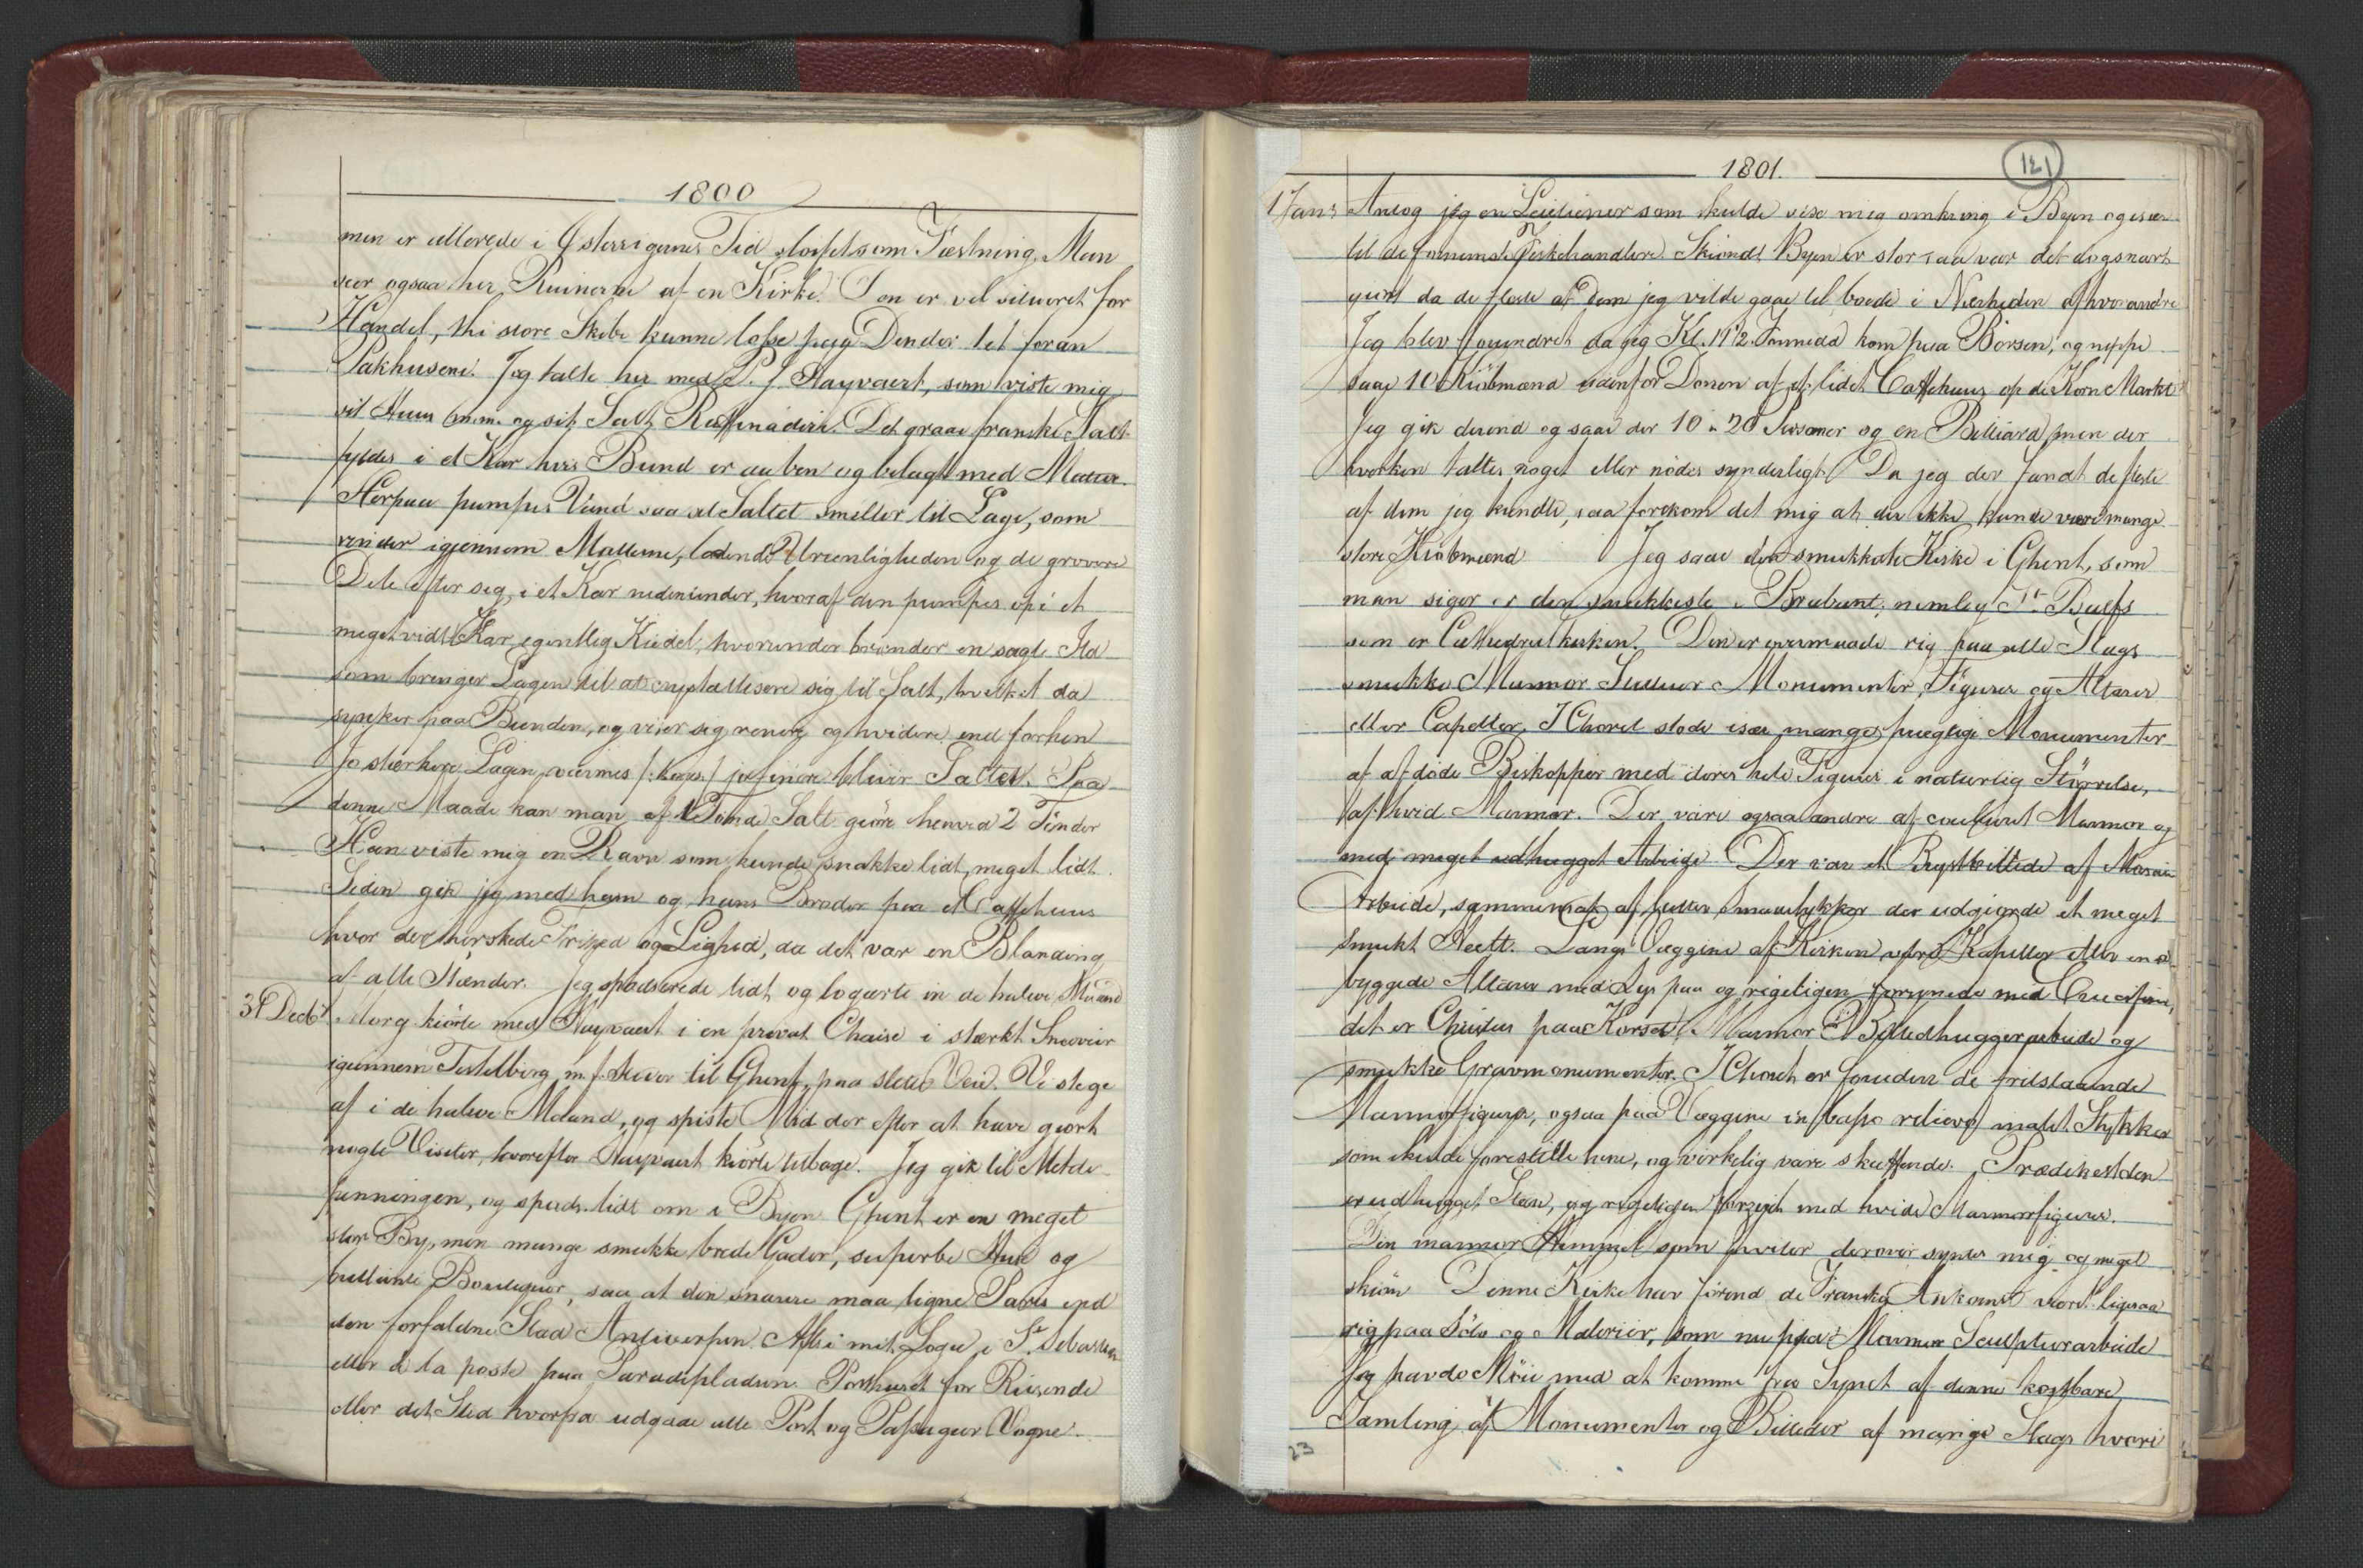 1800
men er allerede i Østerrigernes Tid sløifet som Fæstning. Man
seer ogsaa her Ruinerne af en Kirke. Den er vel situeret for
Handel, thi store Skibe kunne losse paa Dender tæt foran
Pakhusene. Jeg talte her med P. J. Stayvaert, som viste mig
sit Huus m.m. og sit Salt Raffinaderi. Det graae franske Salt
fyldes i et Kar hvis Bund er aaben og belagt med Matter.
Herpaa pumpes Vand saa at Saltet smelter til Lage, som
rinder igjennem Matterne, ladende Ureenligheden og de grovere
Dele efter sig, i et Kar nedenunder, hvoraf den pumpes op i et
meget vidt Kar, egentlig Kiedel, hvorunder brænder en sagte Ild
som bringer Lagen til at crystallisere sig til Salt, hvilket da
synker paa Bunden, og viser sig renere og hvidere end forhen
Jo stærkere Lagen varmes /: koges :/ jo finere bliver Saltet. Paa
denne Maade kan man af 1 Tønde Salt giøre henved 2 Tønder
Han viste mig en Ravn som kunde snakke lidt, meget lidt.
Siden gik jeg med ham og hans Broder paa et Caffehuus
hvor der herskede Frihed og Lighed, da det var en Blanding
af alle Stænder. Jeg spadserede lidt og logerte in de halve Maand
31 Decbr Morg kiørte med Stayvaert i en privat Chaise i stærkt Sneeveir
igiennem m. fl. Steder til Ghent, paa slette Veie. Vi stege
af i de halve Maand, og spiste Mid der efter at have giort
nogle Visiter, hvorefter Stayvaert kiørte tilbage. Jeg gik til Melde
penningen, og spads. lidt om i Byen. Ghent er en meget
stor By, men mange smukke brede Gader, superbe Huse og
brillante Boutiquer, saa at den snarere maa ligne Paris end
den forfaldne Stad Antwerpen. Aft. i mit Logie i St. Sebastian
eller à la poste paa Paradepladsen. Posthuset for Reisende
eller det Sted hvorfra udgaae alle Post og Passageer Vogne.
1801.
121
1 Janr Antog jeg en Leietiener som skulde vise mig omkring i Byen og især
til de fornemste Fiskehandlere. Skiøndt Byen er stor saa var det dog snart
giort da de fleste af dem jeg vilde gaae til boede i Nærheden af hverandre
Jeg blev forundret da jeg Kl. 11 1/2 Formidd kom paa Børsen, og neppe
saae 10 Kiøbmænd udenfor Døren af et lidet Caffehuus op de Korn Markt
Jeg gik derind og saae der 10 à 20 Personer og en Billiard, men der
hverken taltes noget eller nødes synderligt. Da jeg der fandt de fleste
af dem jeg kiendte, saa forekom det mig at der ikke kunde være mange
store Kiøbmænd Jeg saae den smukkeste Kirke i Ghent, som
man siger er den smukkeste i Brabant, nemlig St. Baefs
som er Cathedralkirken. Den er overmaade rig paa alle Slags
smukke Marmor Statuer Monumenter, Figurer og Altarer
eller Capeller. I Choret stode især mange prægtige Monumenter
af afdøde Biskopper med deres hele Figurer i naturlig Størrelse,
af hvid Marmor. Der vare ogsaa andre af couleurt Marmor og
med meget udhugget Arbeide. Der var et Brystbillede af Mosaik
Arbeide, sammensat af smaa Stykker der udgiorde et meget
smukt Heelt. Langs Væggene af Kirken vare Kapeller eller ind-
byggede Altarer med Lys paa og rigeligen forsynede med Crucifixer,
det er Christus paa Korset, Marmor Billedhuggerarbeide og
smukke Gravmonumenter. I Choret er foruden de fritstaaende
Marmorfigurer, ogsaa paa Væggene in basso relievo malet Stykker
som skulde forestille hine, og virkelig vare skuffende. Prædikestolen
er udhugget Steen, og rigeligen forsynet med hvide Marmorfigurer.
Den marmor Himmel som hviler derover syntes mig og meget
skiøn Denne Kirke har førend de Franskes Ankomst været ligesaa
rig paa Sølv og Malerier, som nu paa Marmor Sculpteurarbeide
Jeg havde Møie med at komme fra Synet af denne kostbare
Samling af Monumenter og Billeder af mange Slags hvori
23